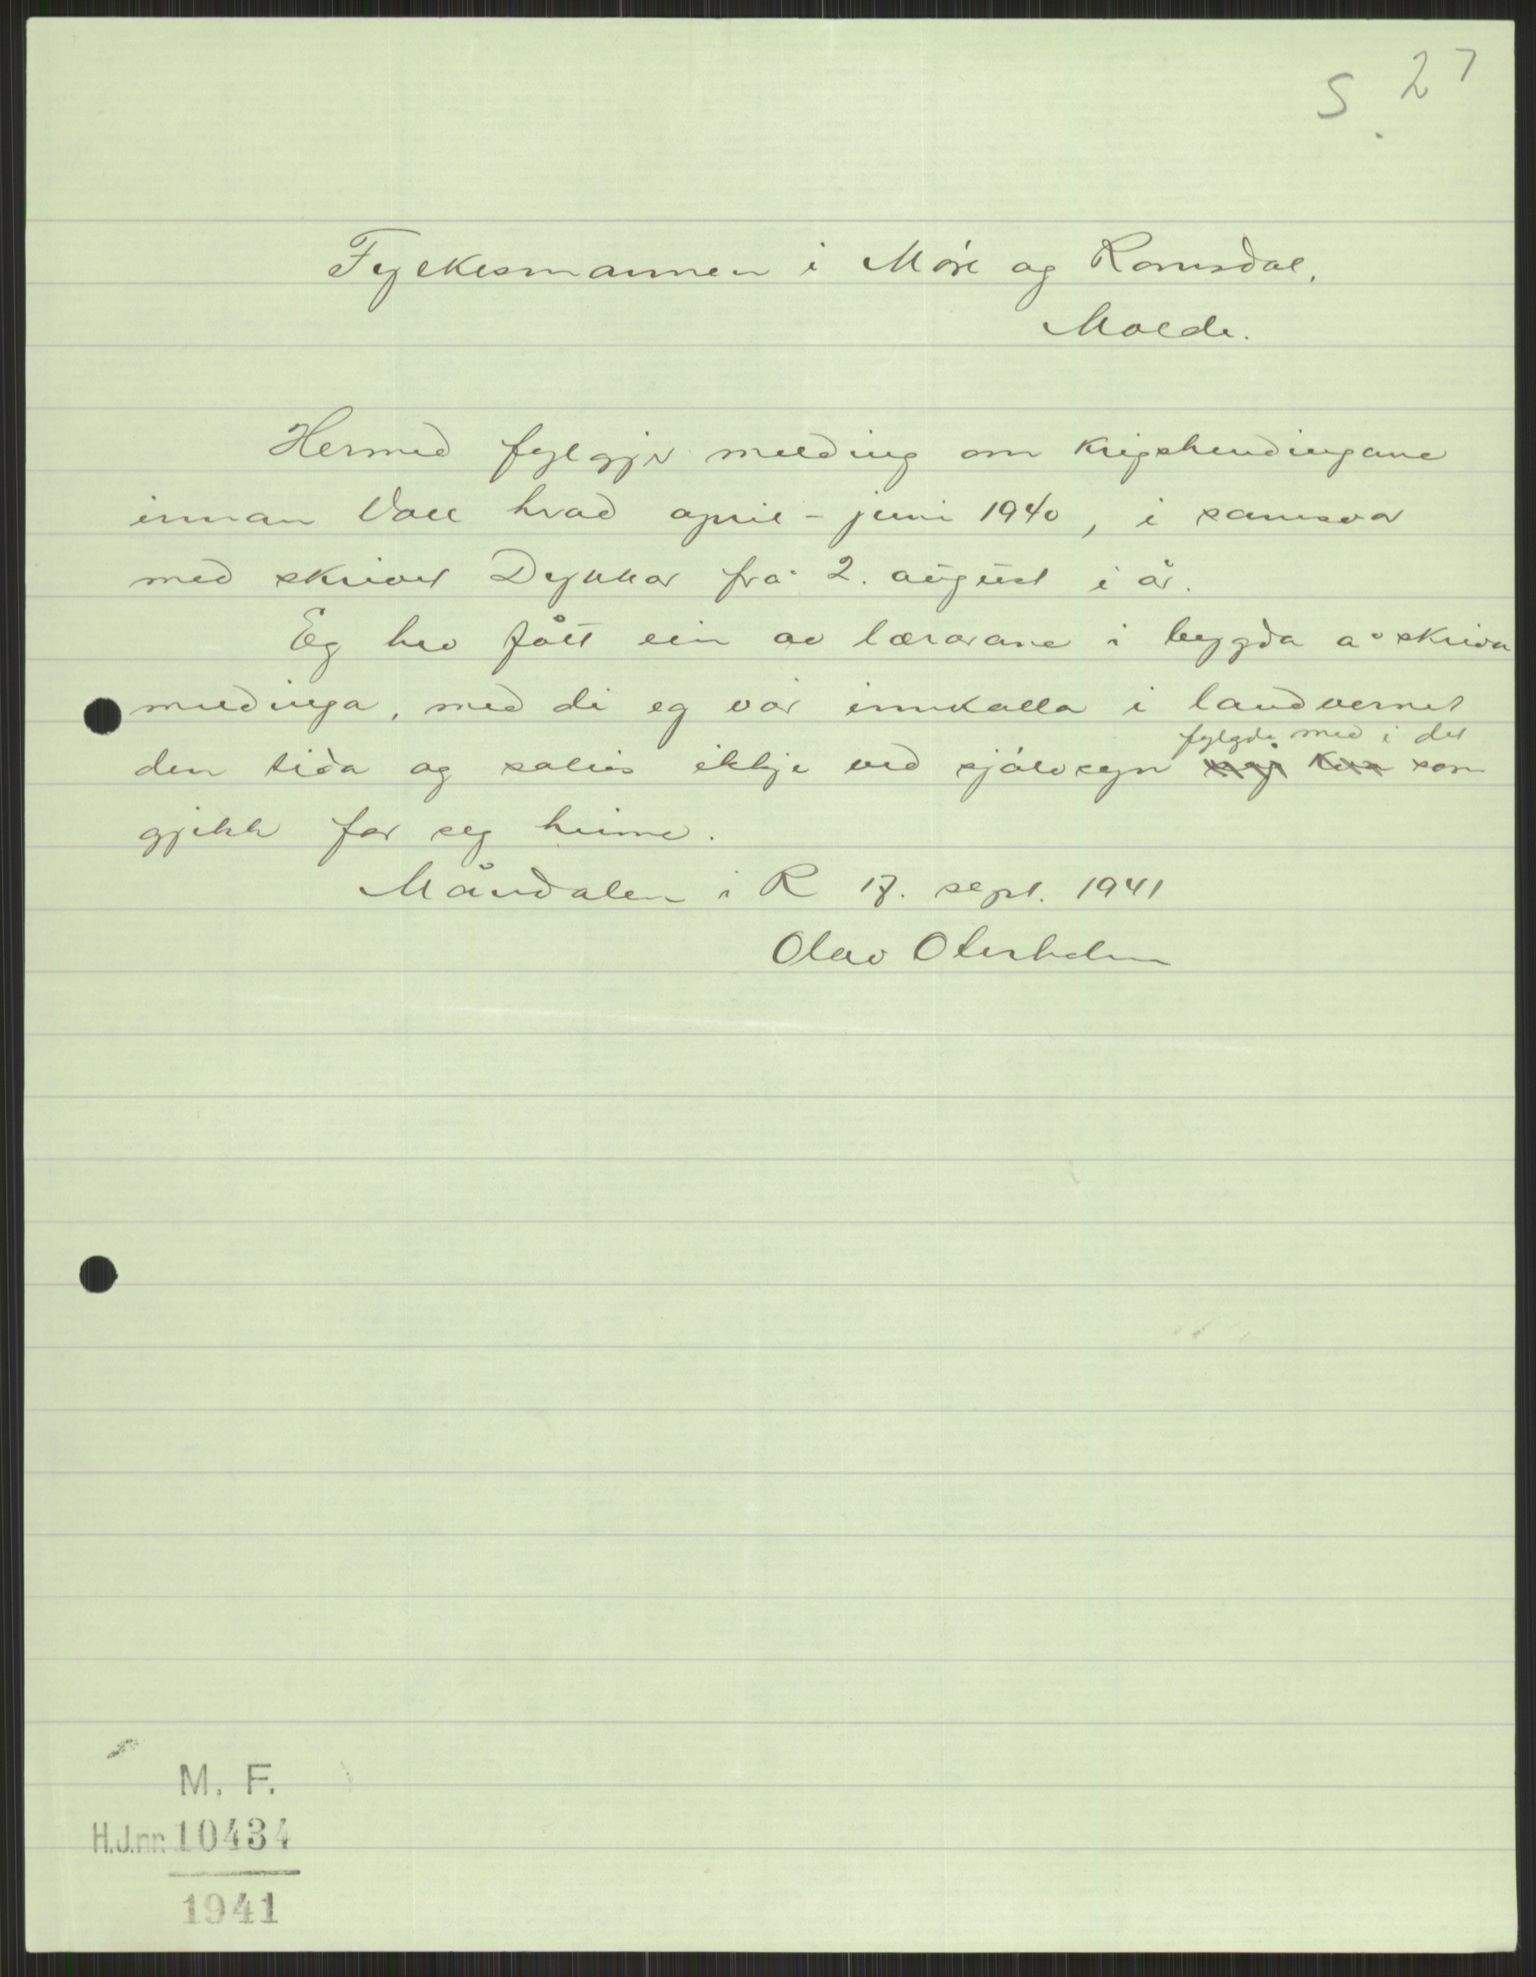 S. 27
Fylkesmannen i Møre og Romsdal.
Molde.
Hermed fylgjer melding om krigshendingane
innan Voll herad april - juni 1940, i samsvar
med skrivet Dykkar frå 2. august i år.
Eg hev fått ein av lærarane i bygda å skriva
meldinga, med di eg var innkalla i landvernet
fylgde med i det
den tida og soleis ikkje ved sjølvsyn som
gjekk for seg heime.
Måndalen i R 17. sept. 1941
Olav Oterholm
M. F.
H.J.nr. 10434
1941